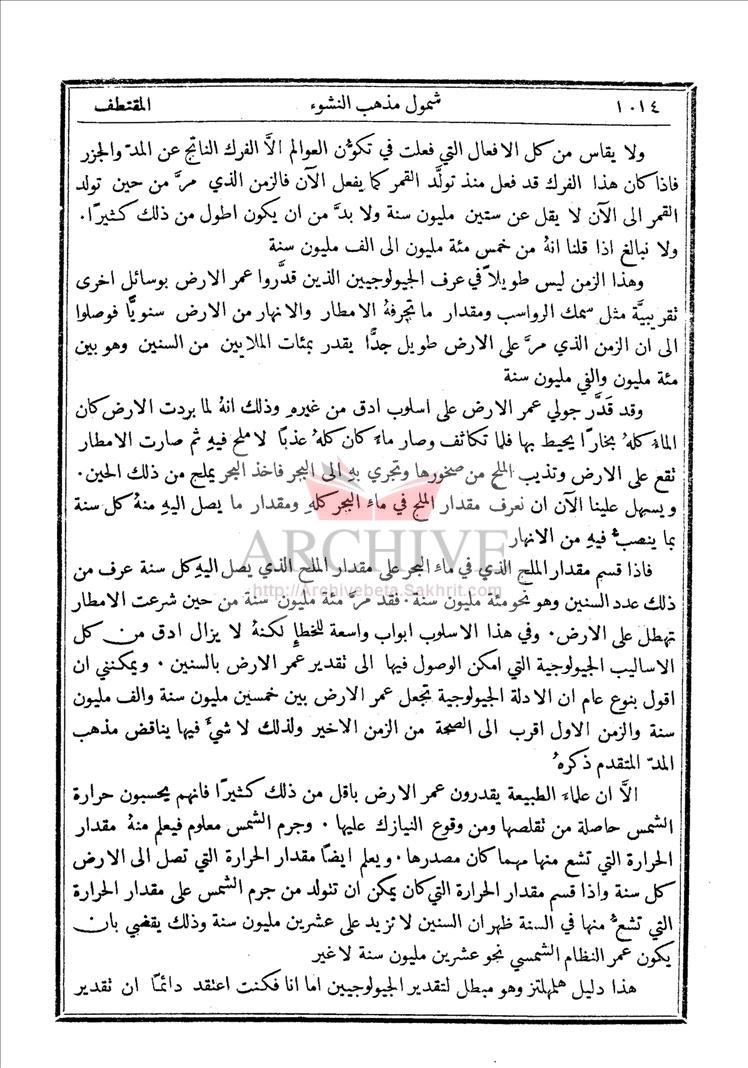 ١٠١٤ شمول مذهب النشوء المقتطف
ولا يقاس من كل الافعال التي فعلت في تكوُّن العوالم الاَّ الفرك الناتج عن المدّ والجزر
فاذا كان هذا الفرك قد فعل منذ تولَّد القمر كما يفعل الآن فالزمن الذي مرَّ من حين تولد
القمر الى الآن لا يقل عن ستين مليون سنة ولا بدَّ من ان يكون اطول من ذلك كثيرًا.
ولا نبالغ اذا قلنا انهُ من خمس مئة مليون الى الف مليون سنة
وهذا الزمن ليس طويلاً في عرف الجيولوجيين الذين قدَّروا عمر الارض بوسائل اخرى
تقريبيَّة مثل سمك الرواسب ومقدار ما تجرفهُ الامطار والانهار من الارض سنويًّا فوصلوا
الى ان الزمن الذي مرَّ على الارض طويل جدًّا يقدر بمئات الملايين من السنين وهو بين
مئة مليون والفي مليون سنة
وقد قَدَّر جولي عمر الارض على اسلوب ادق من غيرهِ وذلك انهُ لما بردت الارض كان
الماءُ كلهُ بخارًا يحيط بها فلما تكاثف وصار ماءً كان كلهُ عذبًا لا ملح فيهِ ثم صارت الامطار
تقع على الارض وتذيب الملح من صخورها وتجري بهِ الى البحر فاخذ البحر يملح من ذلك الحين.
ويسهل علينا الآن ان نعرف مقدار الملح في ماء البحر كلهِ ومقدار ما يصل اليهِ منهُ كل سنة
بما ينصبُّ فيهِ من الانهار
ARCHIVE
فاذا قسم مقدار الملح الذي في ماء البحر على مقدار الملح الذي يصل اليهِ كل سنة عرف من
http://Archivebeta.Sakhrit.com
ذلك عدد السنين وهو نحو مئة مليون سنة. فقد مرَّ مئة مليون سنة من حين شرعت الامطار
تهطل على الارض. وفي هذا الاسلوب ابواب واسعة للخطإِ لكنهُ لا يزال ادق من كل
الاساليب الجيولوجية التي امكن الوصول فيها الى تقدير عمر الارض بالسنين. ويمكنني ان
اقول بنوع عام ان الادلة الجيولوجية تجعل عمر الارض بين خمسين مليون سنة والف مليون
سنة والزمن الاول اقرب الى الصحة من الزمن الاخير ولذلك لا شيءَ فيها يناقض مذهب
المدّ المتقدم ذكرهُ
الاَّ ان علماءَ الطبيعة يقدرون عمر الارض باقل من ذلك كثيرًا فانهم يحسبون حرارة
الشمس حاصلة من تقلصها ومن وقوع النيازك عليها. وجرم الشمس معلوم فيعلم منهُ مقدار
الحرارة التي تشع منها مهما كان مصدرها. ويعلم ايضًا مقدار الحرارة التي تصل الى الارض
كل سنة واذا قسم مقدار الحرارة التي كان يمكن ان تتولد من جرم الشمس على مقدار الحرارة
التي تشعُّ منها في السنة ظهر ان السنين لا تزيد على عشرين مليون سنة وذلك يقضي بان
يكون عمر النظام الشمسي نحو عشرين مليون سنة لا غير
هذا دليل هلمهلتز وهو مبطل لتقدير الجيولوجيين اما انا فكنت اعتقد دائمًا ان تقدير